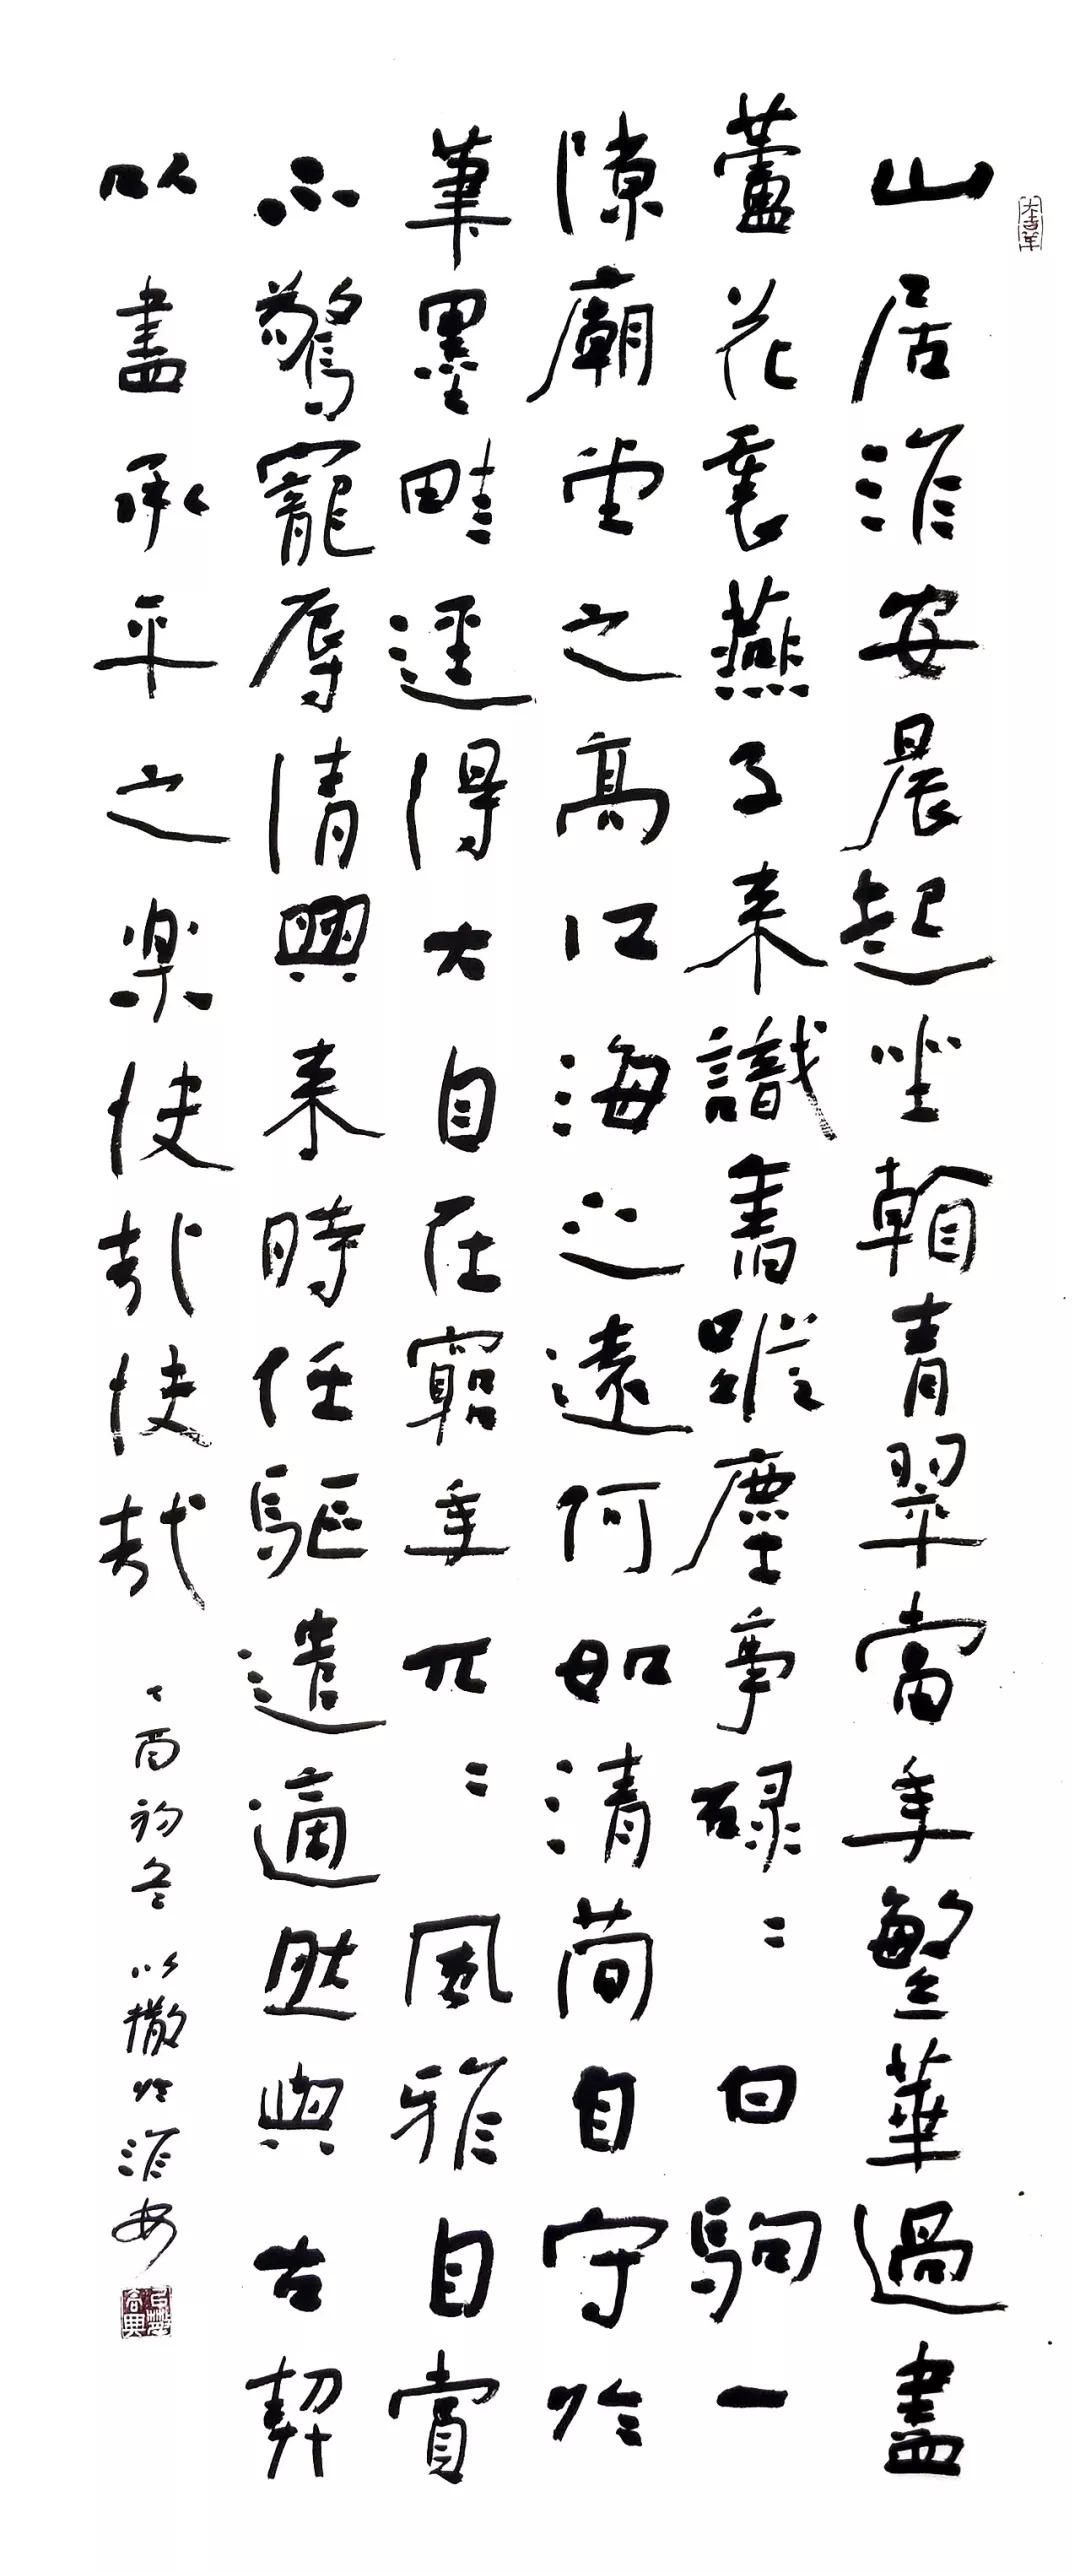 山居淮安晨起坐翰青翠當年繁華過盡
蘆花裏燕子來識書蹤塵事碌〻白駒一
隙廟堂之高江海之遠何如清简自守於
筆墨畦逕得大自在窮年兀〻風雅自賞
不驚寵辱清興來時任驅遣適然與古契
以盡承平之樂快哉快哉
丁酉初冬 以撒於淮安